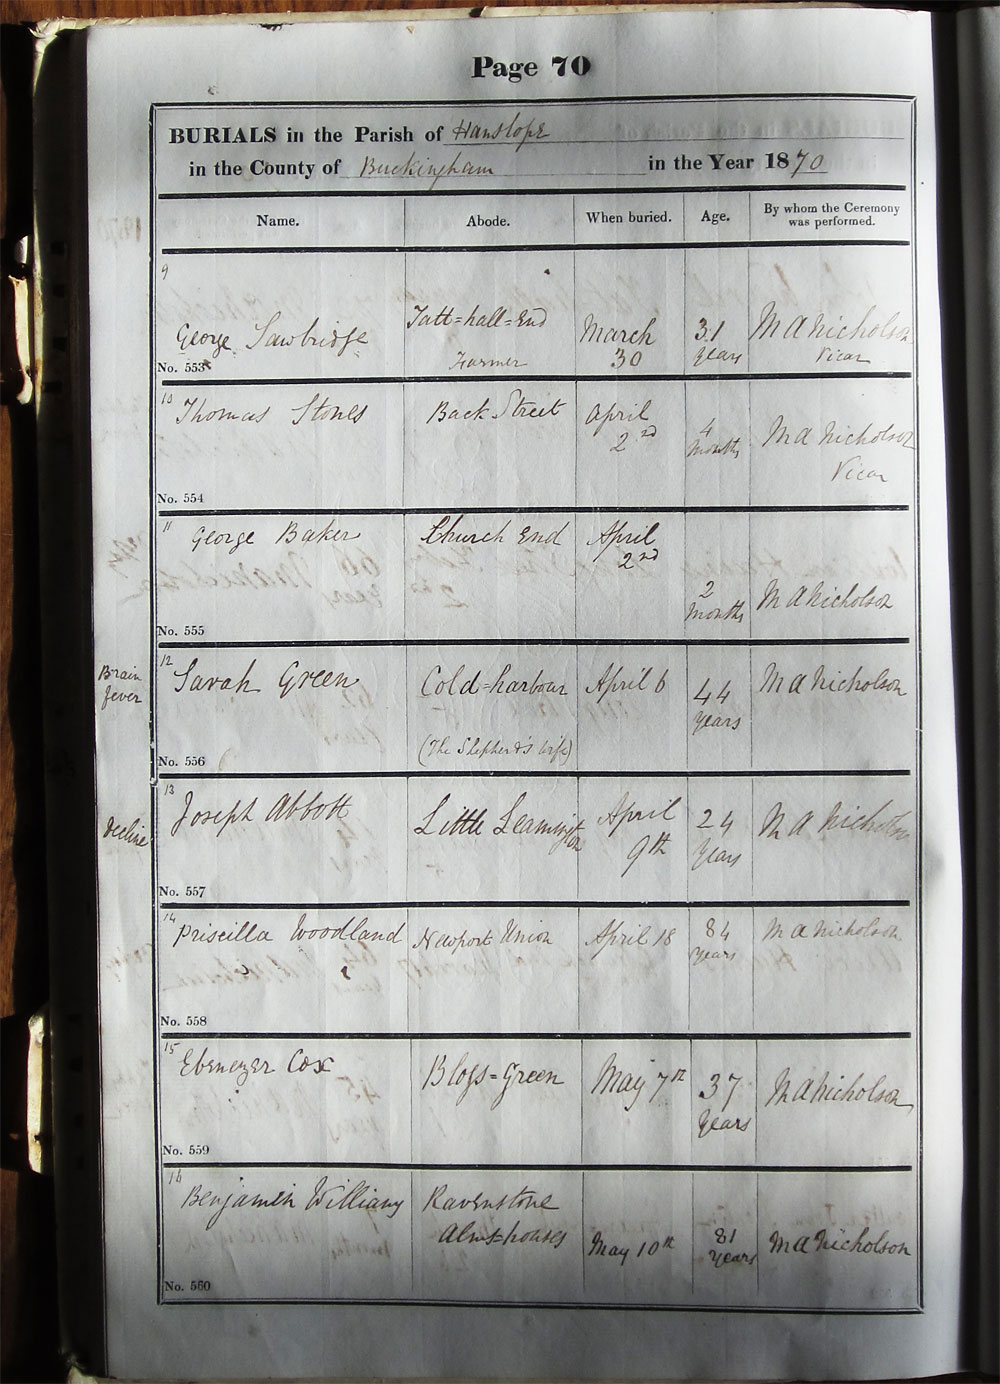 Page 70
BURIALS in the Parish of Hanslope
in the County of Buckingham in the Year 1870
Name. Abode. When buried. Age. By whom the Ceremony was performed.
9
George Sawbridge Tatt=hall=End March 31 M A Nicholson
Farmer 30 years Vicar
No. 553
10 Thomas Stones Back Street April 4 M A Nicholson
2nd months Vicar
No. 554
11 George Baker Church End April
2nd 2 months M A Nicholson
No. 555
Brain fever
12 Sarah Green Cold=harbour April 6 44 years M A Nicholson
(The Shepherd's wife)
No. 556
decline
13 Joseph Abbott Little Leamington April 24 M A Nicholson
9th years
No. 557
14 Priscilla Woodland Newport Union April 18 84 years M A Nicholson
No. 558
15 Ebenezer Cox Blogs=Green May 7th 37 years M A Nicholson
No. 559
16 Benjamin Williams Ravenstone
Alms=houses May 10th 81 years M A Nicholson
No. 560